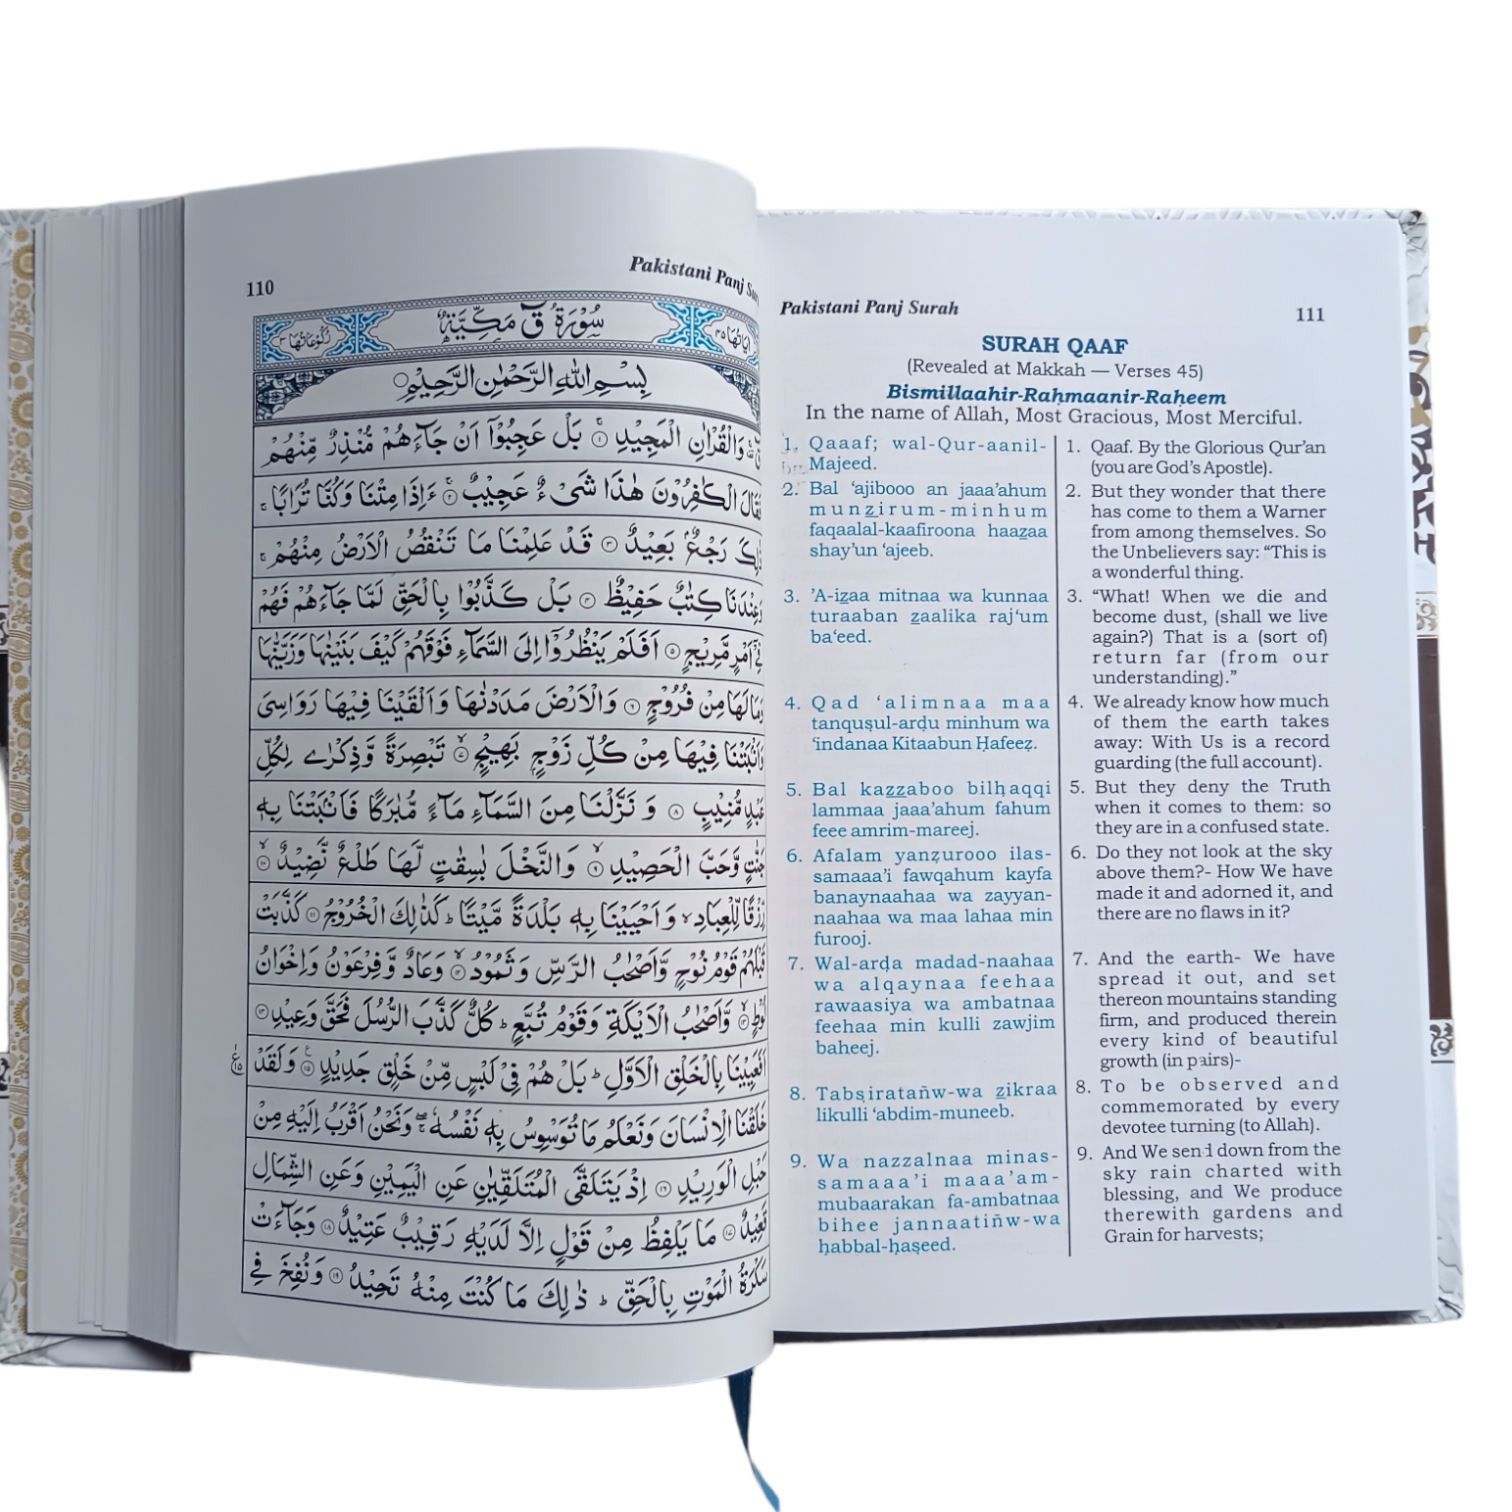 110
Pakistani Panj
سُوْرَةُ قٓ مَكِّيَّةٌ
رُكُوْعَاتُهَا ٣
اٰيَاتُهَا ٤٥
بِسْمِ اللّٰهِ الرَّحْمٰنِ الرَّحِيْمِ
وَالْقُرْاٰنِ الْمَجِيْدِ ۝١ بَلْ عَجِبُوْٓا اَنْ جَآءَهُمْ مُّنْذِرٌ مِّنْهُمْ
فَقَالَ الْكٰفِرُوْنَ هٰذَا شَىْءٌ عَجِيْبٌ ۝٢ ءَاِذَا مِتْنَا وَكُنَّا تُرَابًا ۚ
رَجْعٌۢ بَعِيْدٌ ۝٣ قَدْ عَلِمْنَا مَا تَنْقُصُ الْاَرْضُ مِنْهُمْ ۚ
وَعِنْدَنَا كِتٰبٌ حَفِيْظٌ ۝٤ بَلْ كَذَّبُوْا بِالْحَقِّ لَمَّا جَآءَهُمْ فَهُمْ
فِيْٓ اَمْرٍ مَّرِيْجٍ ۝٥ اَفَلَمْ يَنْظُرُوْٓا اِلَى السَّمَآءِ فَوْقَهُمْ كَيْفَ بَنَيْنٰهَا وَزَيَّنّٰهَا
وَمَا لَهَا مِنْ فُرُوْجٍ ۝٦ وَالْاَرْضَ مَدَدْنٰهَا وَاَلْقَيْنَا فِيْهَا رَوَاسِىَ
وَاَنْۢبَتْنَا فِيْهَا مِنْ كُلِّ زَوْجٍۢ بَهِيْجٍ ۝٧ تَبْصِرَةً وَّذِكْرٰى لِكُلِّ
عَبْدٍ مُّنِيْبٍ ۝٨ وَنَزَّلْنَا مِنَ السَّمَآءِ مَآءً مُّبٰرَكًا فَاَنْۢبَتْنَا بِهٖ
جَنّٰتٍ وَّحَبَّ الْحَصِيْدِ ۝٩ وَالنَّخْلَ بٰسِقٰتٍ لَّهَا طَلْعٌ نَّضِيْدٌ ۝١٠
رِّزْقًا لِّلْعِبَادِ ۙ وَاَحْيَيْنَا بِهٖ بَلْدَةً مَّيْتًا ؕ كَذٰلِكَ الْخُرُوْجُ ۝١١ كَذَّبَتْ
قَبْلَهُمْ قَوْمُ نُوْحٍ وَّاَصْحٰبُ الرَّسِّ وَثَمُوْدُ ۝١٢ وَعَادٌ وَّفِرْعَوْنُ وَاِخْوَانُ
لُوْطٍ ۝١٣ وَّاَصْحٰبُ الْاَيْكَةِ وَقَوْمُ تُبَّعٍ ؕ كُلٌّ كَذَّبَ الرُّسُلَ فَحَقَّ وَعِيْدِ ۝١٤
اَفَعَيِيْنَا بِالْخَلْقِ الْاَوَّلِ ؕ بَلْ هُمْ فِيْ لَبْسٍ مِّنْ خَلْقٍ جَدِيْدٍ ۝١٥ وَلَقَدْ
خَلَقْنَا الْاِنْسَانَ وَنَعْلَمُ مَا تُوَسْوِسُ بِهٖ نَفْسُهٗ ۖۚ وَنَحْنُ اَقْرَبُ اِلَيْهِ مِنْ
حَبْلِ الْوَرِيْدِ ۝١٦ اِذْ يَتَلَقَّى الْمُتَلَقِّيٰنِ عَنِ الْيَمِيْنِ وَعَنِ الشِّمَالِ
قَعِيْدٌ ۝١٧ مَا يَلْفِظُ مِنْ قَوْلٍ اِلَّا لَدَيْهِ رَقِيْبٌ عَتِيْدٌ ۝١٨ وَجَآءَتْ
سَكْرَةُ الْمَوْتِ بِالْحَقِّ ؕ ذٰلِكَ مَا كُنْتَ مِنْهُ تَحِيْدُ ۝١٩ وَنُفِخَ فِي
Pakistani Panj Surah
111
SURAH QAAF
(Revealed at Makkah — Verses 45)
Bismillaahir-Raḥmaanir-Raḥeem
In the name of Allah, Most Gracious, Most Merciful.
1. Qaaaf; wal-Qur-aanil-
Majeed.
2. Bal ‘ajibooo an jaaa’ahum
munzirum-minhum
faqaalal-kaafiroona haazaa
shay’un ‘ajeeb.
3. ’A-izaa mitnaa wa kunnaa
turaaban zaalika raj‘um
ba‘eed.
4. Qad ‘alimnaa maa
tanquṣul-arḍu minhum wa
‘indanaa Kitaabun Ḥafeeẓ.
5. Bal kazzaboo bilḥaqqi
lammaa jaaa’ahum fahum
feee amrim-mareej.
6. Afalam yanẓurooo ilas-
samaaa’i fawqahum kayfa
banaynaahaa wa zayyan-
naahaa wa maa lahaa min
furooj.
7. Wal-arḍa madad-naahaa
wa alqaynaa feehaa
rawaasiya wa ambatnaa
feehaa min kulli zawjim
baheej.
8. Tabṣiratañw-wa zikraa
likulli ‘abdim-muneeb.
9. Wa nazzalnaa minas-
samaaa’i maaa’am-
mubaarakan fa-ambatnaa
bihee jannaatiñw-wa
ḥabbal-ḥaṣeed.
1. Qaaf. By the Glorious Qur’an
(you are God’s Apostle).
2. But they wonder that there
has come to them a Warner
from among themselves. So
the Unbelievers say: “This is
a wonderful thing.
3. “What! When we die and
become dust, (shall we live
again?) That is a (sort of)
return far (from our
understanding).”
4. We already know how much
of them the earth takes
away: With Us is a record
guarding (the full account).
5. But they deny the Truth
when it comes to them: so
they are in a confused state.
6. Do they not look at the sky
above them?- How We have
made it and adorned it, and
there are no flaws in it?
7. And the earth- We have
spread it out, and set
thereon mountains standing
firm, and produced therein
every kind of beautiful
growth (in pairs)-
8. To be observed and
commemorated by every
devotee turning (to Allah).
9. And We send down from the
sky rain charted with
blessing, and We produce
therewith gardens and
Grain for harvests;